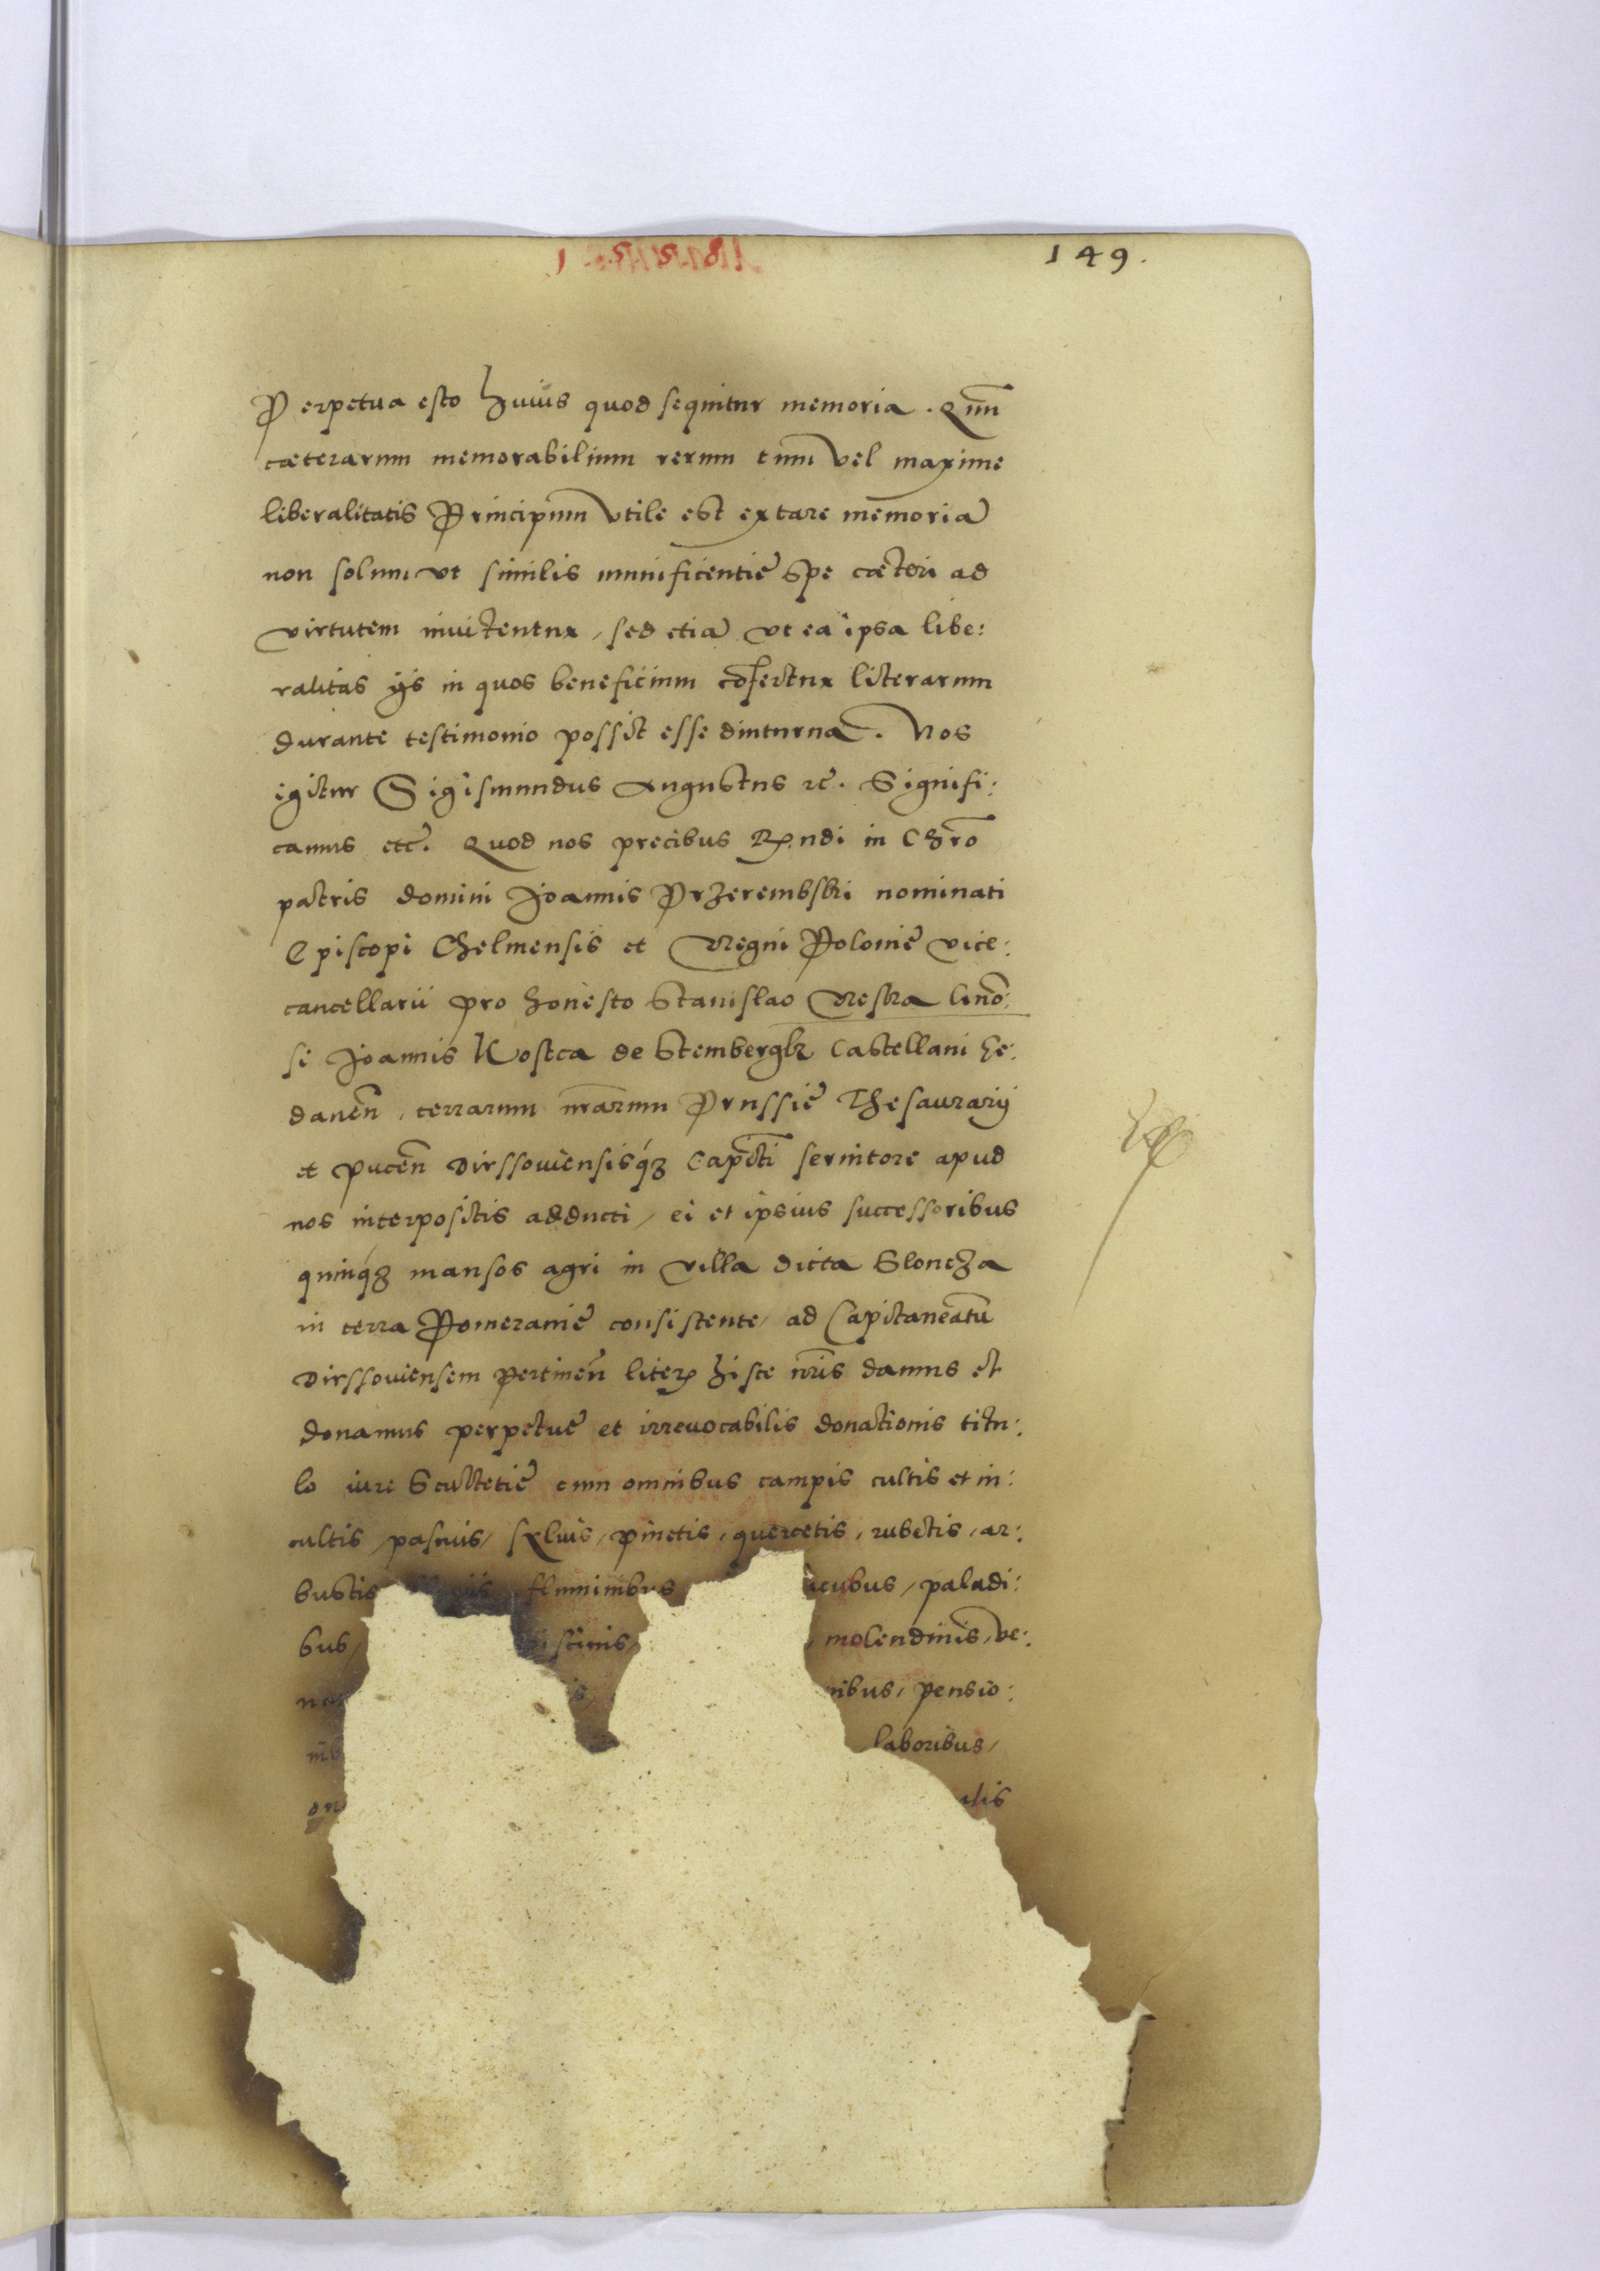 149.
Perpetua esto huius quod sequitur memoria. Quum
caeterarum memorabilium rerum tum vel maxime
liberalitatis Principum vtile est extare memoriā
non solum vt similis munificentię spe caeteri ad
virtutem inuitentur, sed etiā vt ea ipsa libe:
ralitas ijs in quos beneficium cōfertur literarum
durante testimonio possit esse diuturna. Nos
igitur Sigismundus Augustus etc. Signifi:
camus etc. Quod nos precibus R.ndi in Chro
patris domini Joannis Przerembski nominati
Episcopi Chelmensis et Regni Polonię vice:
cancellarii pro honesto Stanislao
si Joannis Kostca de Stembergk Castellani Ge:
danen̄, terrarum nr̄arum Prussię Thesaurarij
et pucen̄ Dirssouiensisq́ꝫ Capti seruitore apud
nos interpositis adducti, ei et ipsius successoribus
quinqꝫ mansos agri in villa dicta Sloncza
in terra Pomeranię consistente, ad Capitaneatū
Dirssouiensem pertinen̄ liter. hisce nr̄is damus et
donamus perpetuę et irreuocabilis donationis titu:
lo iure Scultetię cum omnibus campis cultis et in:
cultis, pascuis, syluis, pinetis, quercetis, rubetis, ar:
bustis fluminibus acubus, paladi:
bus, iscinis, molendinis, ve:
nibus, pensio:
laboribus,
alis